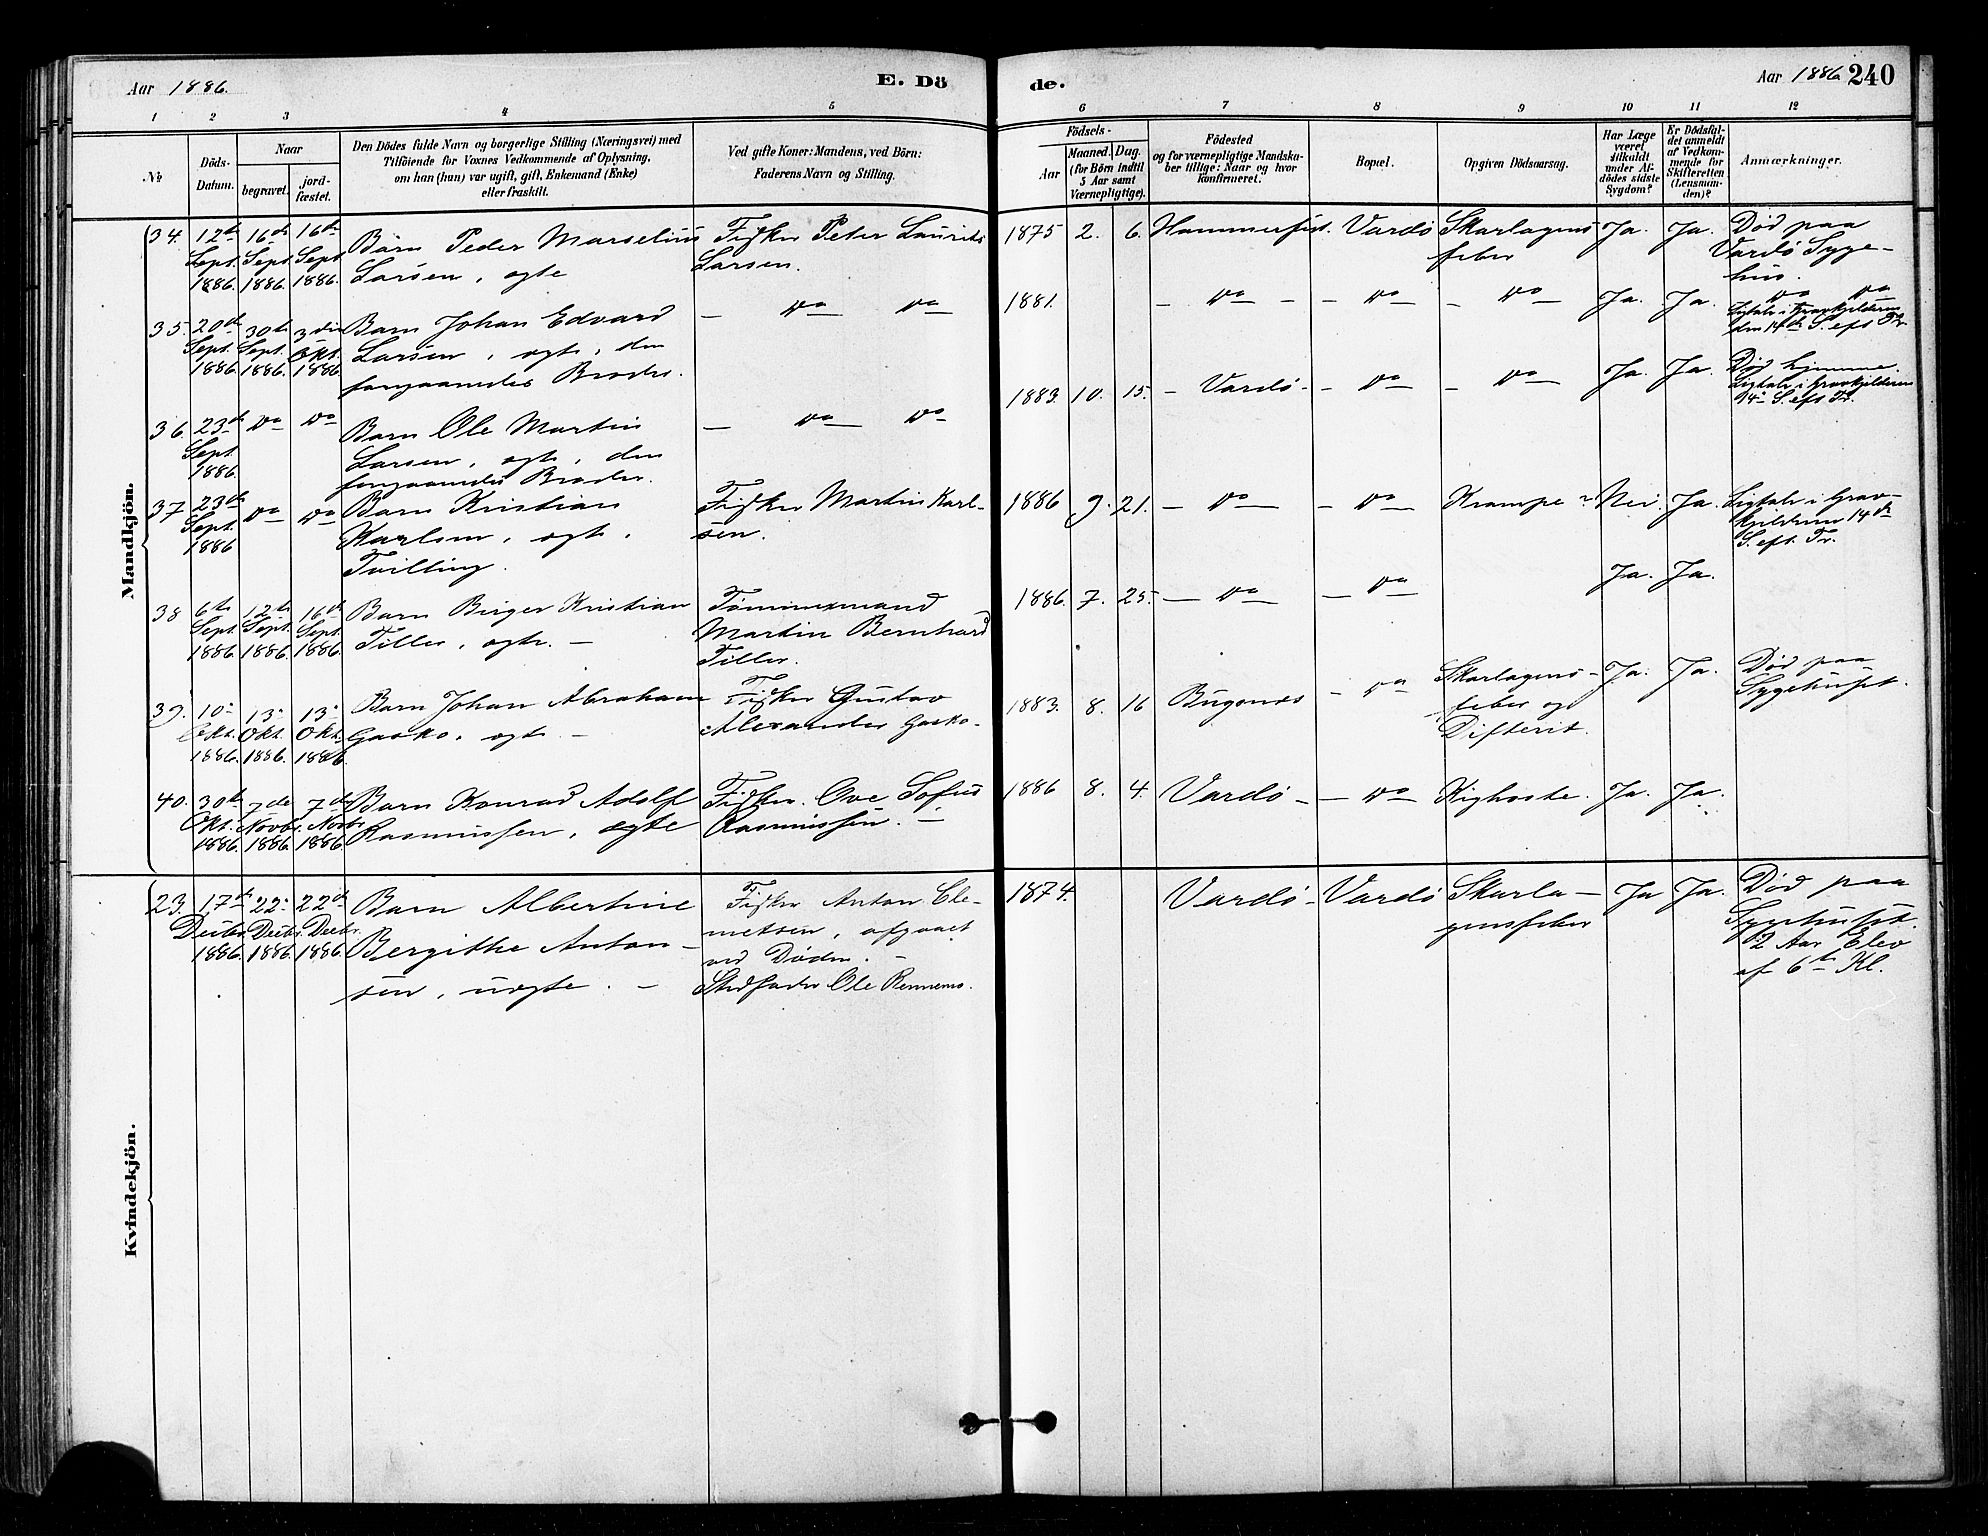 Aar 1886.
E. Dö
de.
Aar 1886
240
1
2
3
4
5
6
7
8
9
10
11
12
No
Döds-
Datum.
Naar
begravet.
jord-
fæstet.
Den Dödes fulde Navn og borgerlige Stilling (Næringsvei) med
Tilföiende for Voxnes Vedkommende af Oplysning,
om han (hun) var ugift, gift, Enkemand (Enke)
eller fraskilt.
Ved gifte Koner: Mandens, ved Börn:
Faderens Navn og Stilling.
Födsels-
Aar
Maaned.
Dag.
(for Börn indtil
5 Aar samt
Værnepligtige).
Födested
og for værnepligtige Mandska-
ber tillige: Naar og hvor
konfirmeret.
Bopæl.
Opgiven Dödsaarsag.
Har Læge
været
tilkaldt
under Af-
dödes sidste
Sygdom?
Er Dödsfal-
det anmeldt
af Vedkom-
mende for
Skifteretten
(Lensman-
den)?
Anmærkninger.
Mandkjön.
34.
12te
Sept.
1886.
16de
Sept.
1886.
16de
Sept
1886.
Barn Peder Marselius
Larsen, ægte
Fisker Peter Laurits
Larsen.
1875
2.
6.
Hammerfest.
Vardö
Skarlagens
feber
Ja.
Ja.
Död paa
Vardö Syge-
hus.
35.
20de
Sept.
1886
30te
Sept.
1886.
3die
Okt.
1886.
Barn Johan Edvard
Larsen, ægte, den
forgaaendes Broder.
— Do — Do
1881.
— Do —
— Do —
— Do —
Ja.
Ja.
Do Do
Ligtale i Gravkjelderen
den 14de S. eft Tr.
36.
23de
Sept
1886
Do
Do
Barn Ole Martin
Larsen, ægte, den
forgaaendes Broder.
— Do — Do
1883.
10.
15.
— Vardö —
— Do —
— Do —
Ja.
Ja.
Död hjemme.
Ligtale i Gravkjelderen
14de S. eft Tr.
37
23de
Sept.
1886
Do
Do
Barn Kristian
Karlsen, ægte,
Tvilling.
Fisker Martin Karl-
sen.
1886
9.
21.
— Do —
— Do —
Krampe?
Nei.
Ja.
Ligtale i Grav-
kjelderen 14de
S. eft. Tr.
38
6te
Sept.
1886.
12te
Sept.
1886.
16de
Sept.
1886.
Barn Birger Kristian
Tiller, ægte. —
Tömmermand
Martin Bernhard
Tiller.
1886.
7.
25.
— Do —
— Do —
Ja.
Ja.
39.
10de
Okt.
1886.
13de
Okt.
1886.
13de
Okt.
1886.
Barn Johan Abraham
Gasko, ægte —
Fisker Gustav
Alexander Gasko.
1883.
8.
16
Bugönes
— Do
Skarlagens-
feber og
Difterit.
Ja.
Ja.
Död paa
Sygehuset.
40.
30te
Okt.
1886.
7de
Novbr.
1886.
7de
Novbr
1886.
Barn Konrad Adolf
Rasmussen, ægte
Fisker Ove Sofus
Rasmussen. —
1886
8.
4.
Vardö —
— Do —
Kighoste.
Ja.
Ja.
Kvindekjön.
23.
17de
Decbr.
1886.
22de
Decbr.
1886.
22de
Decbr.
1886.
Barn Albertine
Bergithe Anton-
sen, uægte. —
Fisker Anton Cle-
metsen, afgaaet
ved Döden. —
Stedfader Ole Rennemo.
1874.
Vardö —
Vardö
Skarla-
gensfeber
Ja
Ja.
Död paa
Sygehuset.
2 Aar Elev
af 6te Kl.